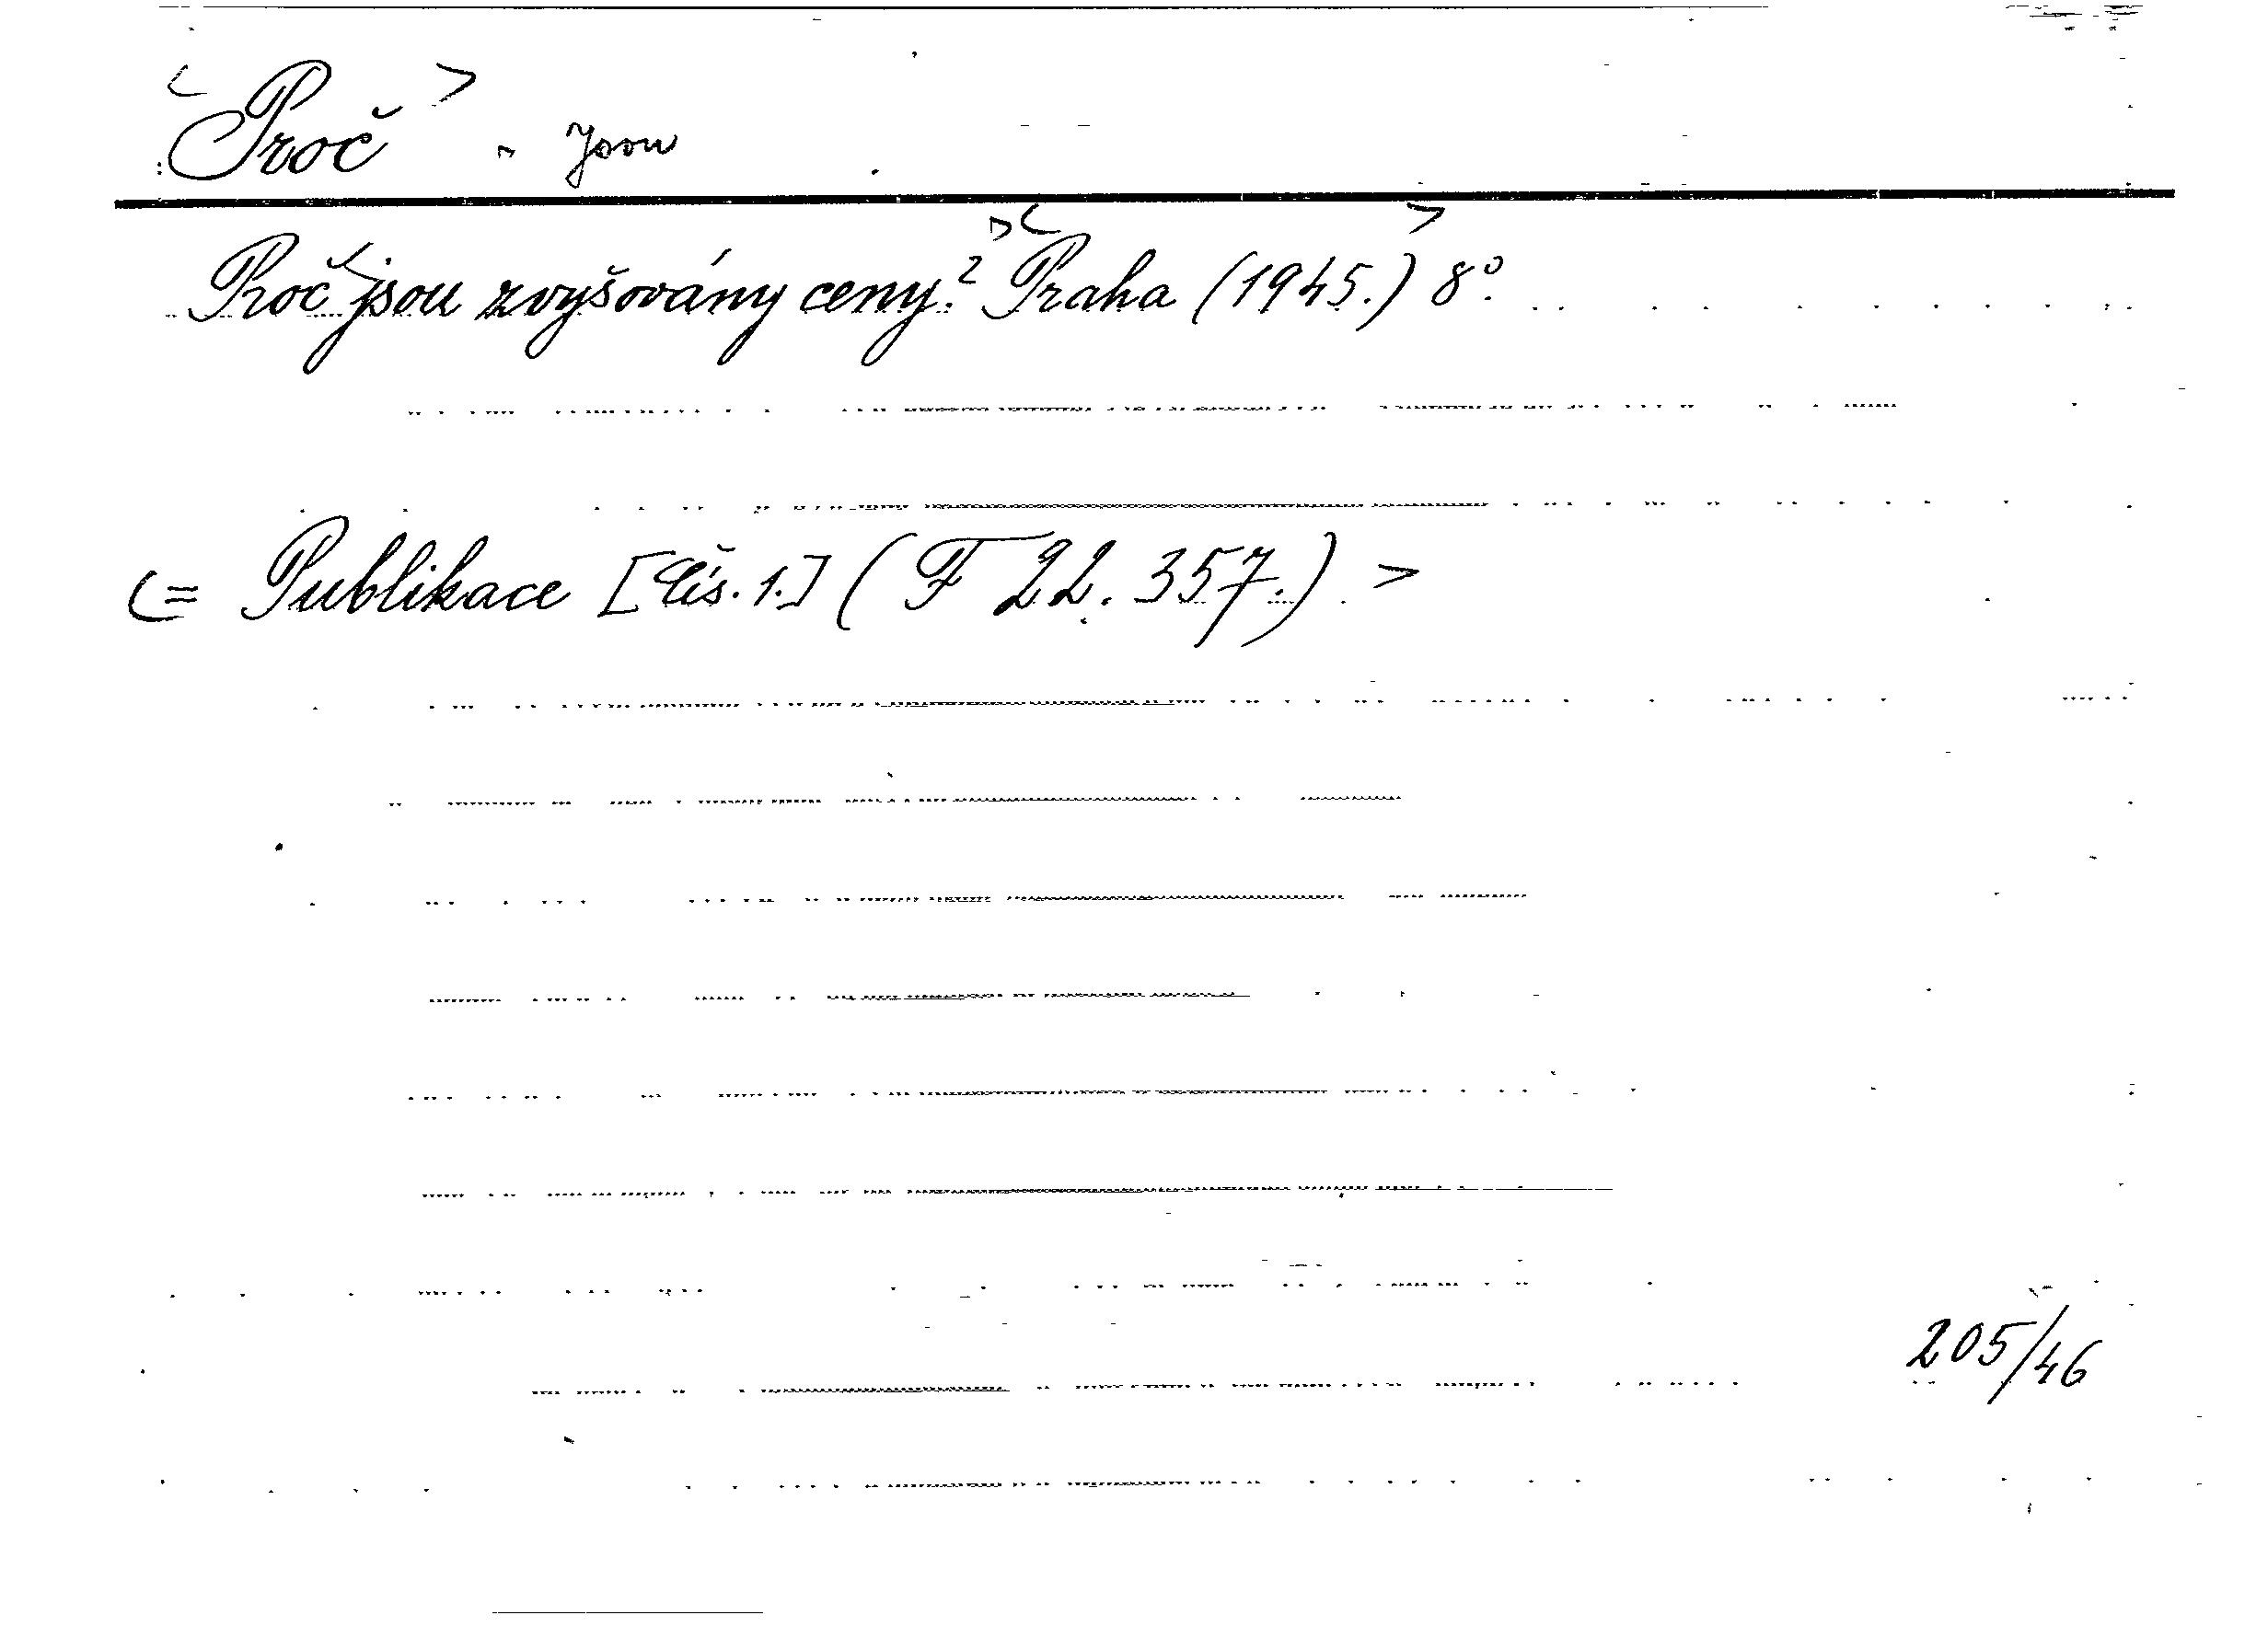 Proč jsou
Proč jsou zvyšovány ceny? Praha (1945.) 8°.
= Publikace [Čís. 1.] (F 22.357.)
205/46